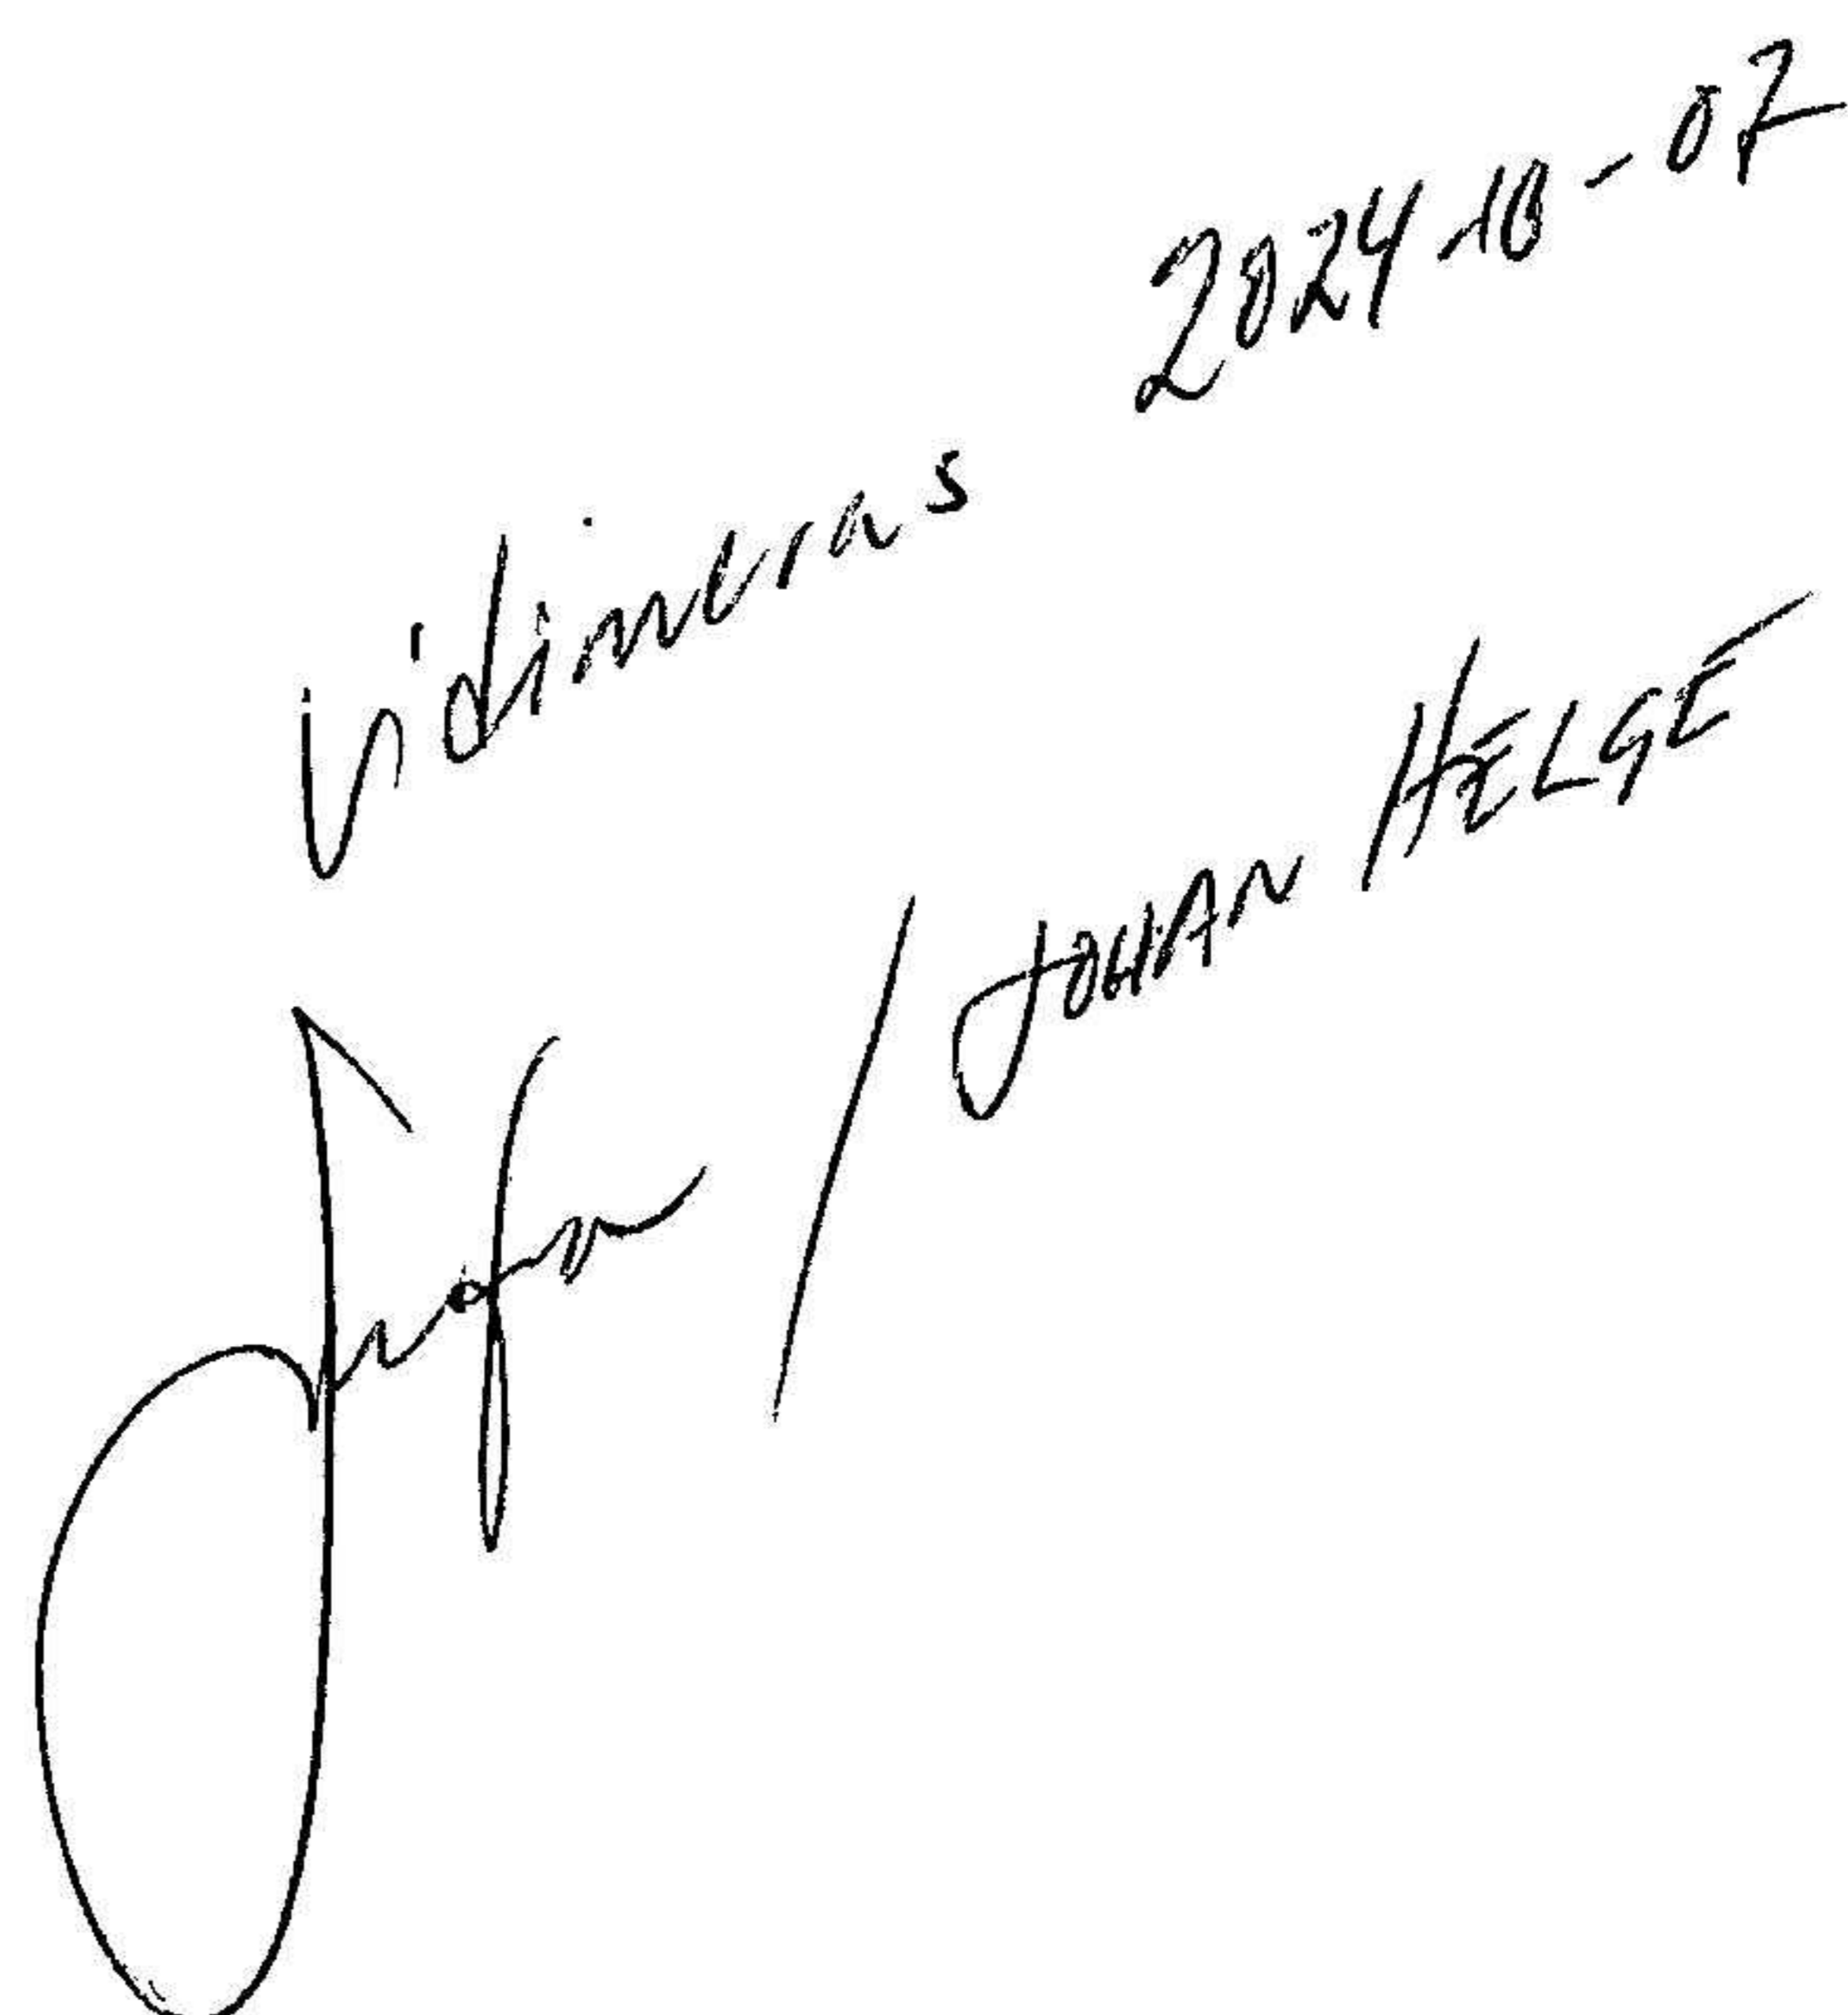 Vidimeras 2024-10-07
/ JOHAN HELGE